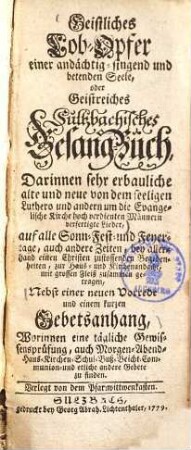 Geistliches
Lob-Opfer
einer andächtig-singend und
betenden Seele,
oder
Geistreiches
Sulzbachisches
Gesang Buch,
Darinnen sehr erbauliche
alte und neue von dem seeligen
Luthero und andern um die Evange-
lische Kirche hoch verdienten Männern
verfertigte Lieder,
auf alle Sonn-Fest-und Feyer-
tage, auch andere Zeiten, bey aller-
hand einen Christen zustossenden Begeben-
heiten, zur Haus- und Kirchenandacht,
mit grossen Fleis zusammen ge-
tragen,
Nebst einer neuen Vorrede
und einem kurzen
Gebetsanhang,
Worinnen eine tägliche Gewis-
sensprüfung, auch Morgen-Abend-
Haus-Kirchen-Schul-Buß-Beicht-Com-
munion-und etliche andere Gebete
zu finden.
Verlegt von dem Pfarrwittwenkasten.
SULZBACH,
gedruckt bey Georg Abrah. Lichtenthaler, 1779.